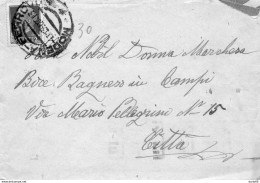 30
MODENA
Alla Nobil Donna Marchesa
Bice Bagnesi in Campi
Via Mario Pellegrini N° 15
Città